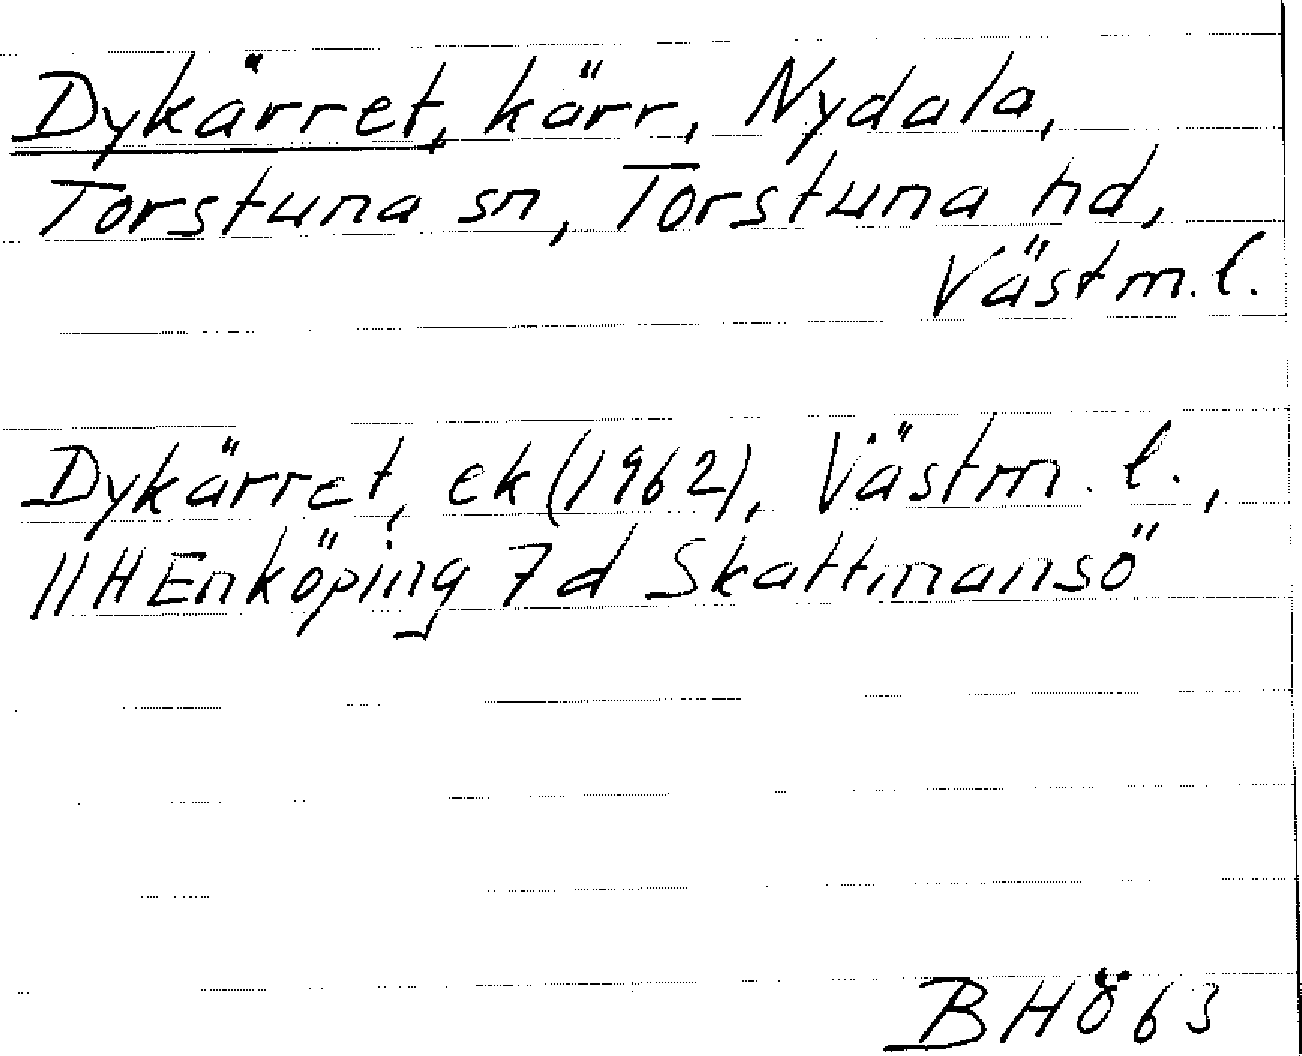 Dykärret, kärr, Nydala,
Torstuna sn, Torstuna hd,
Västm.l.
Dykärret, ek (1962), Västm. l.,
11H Enköping 7d Skattmansö
BHÖ 63